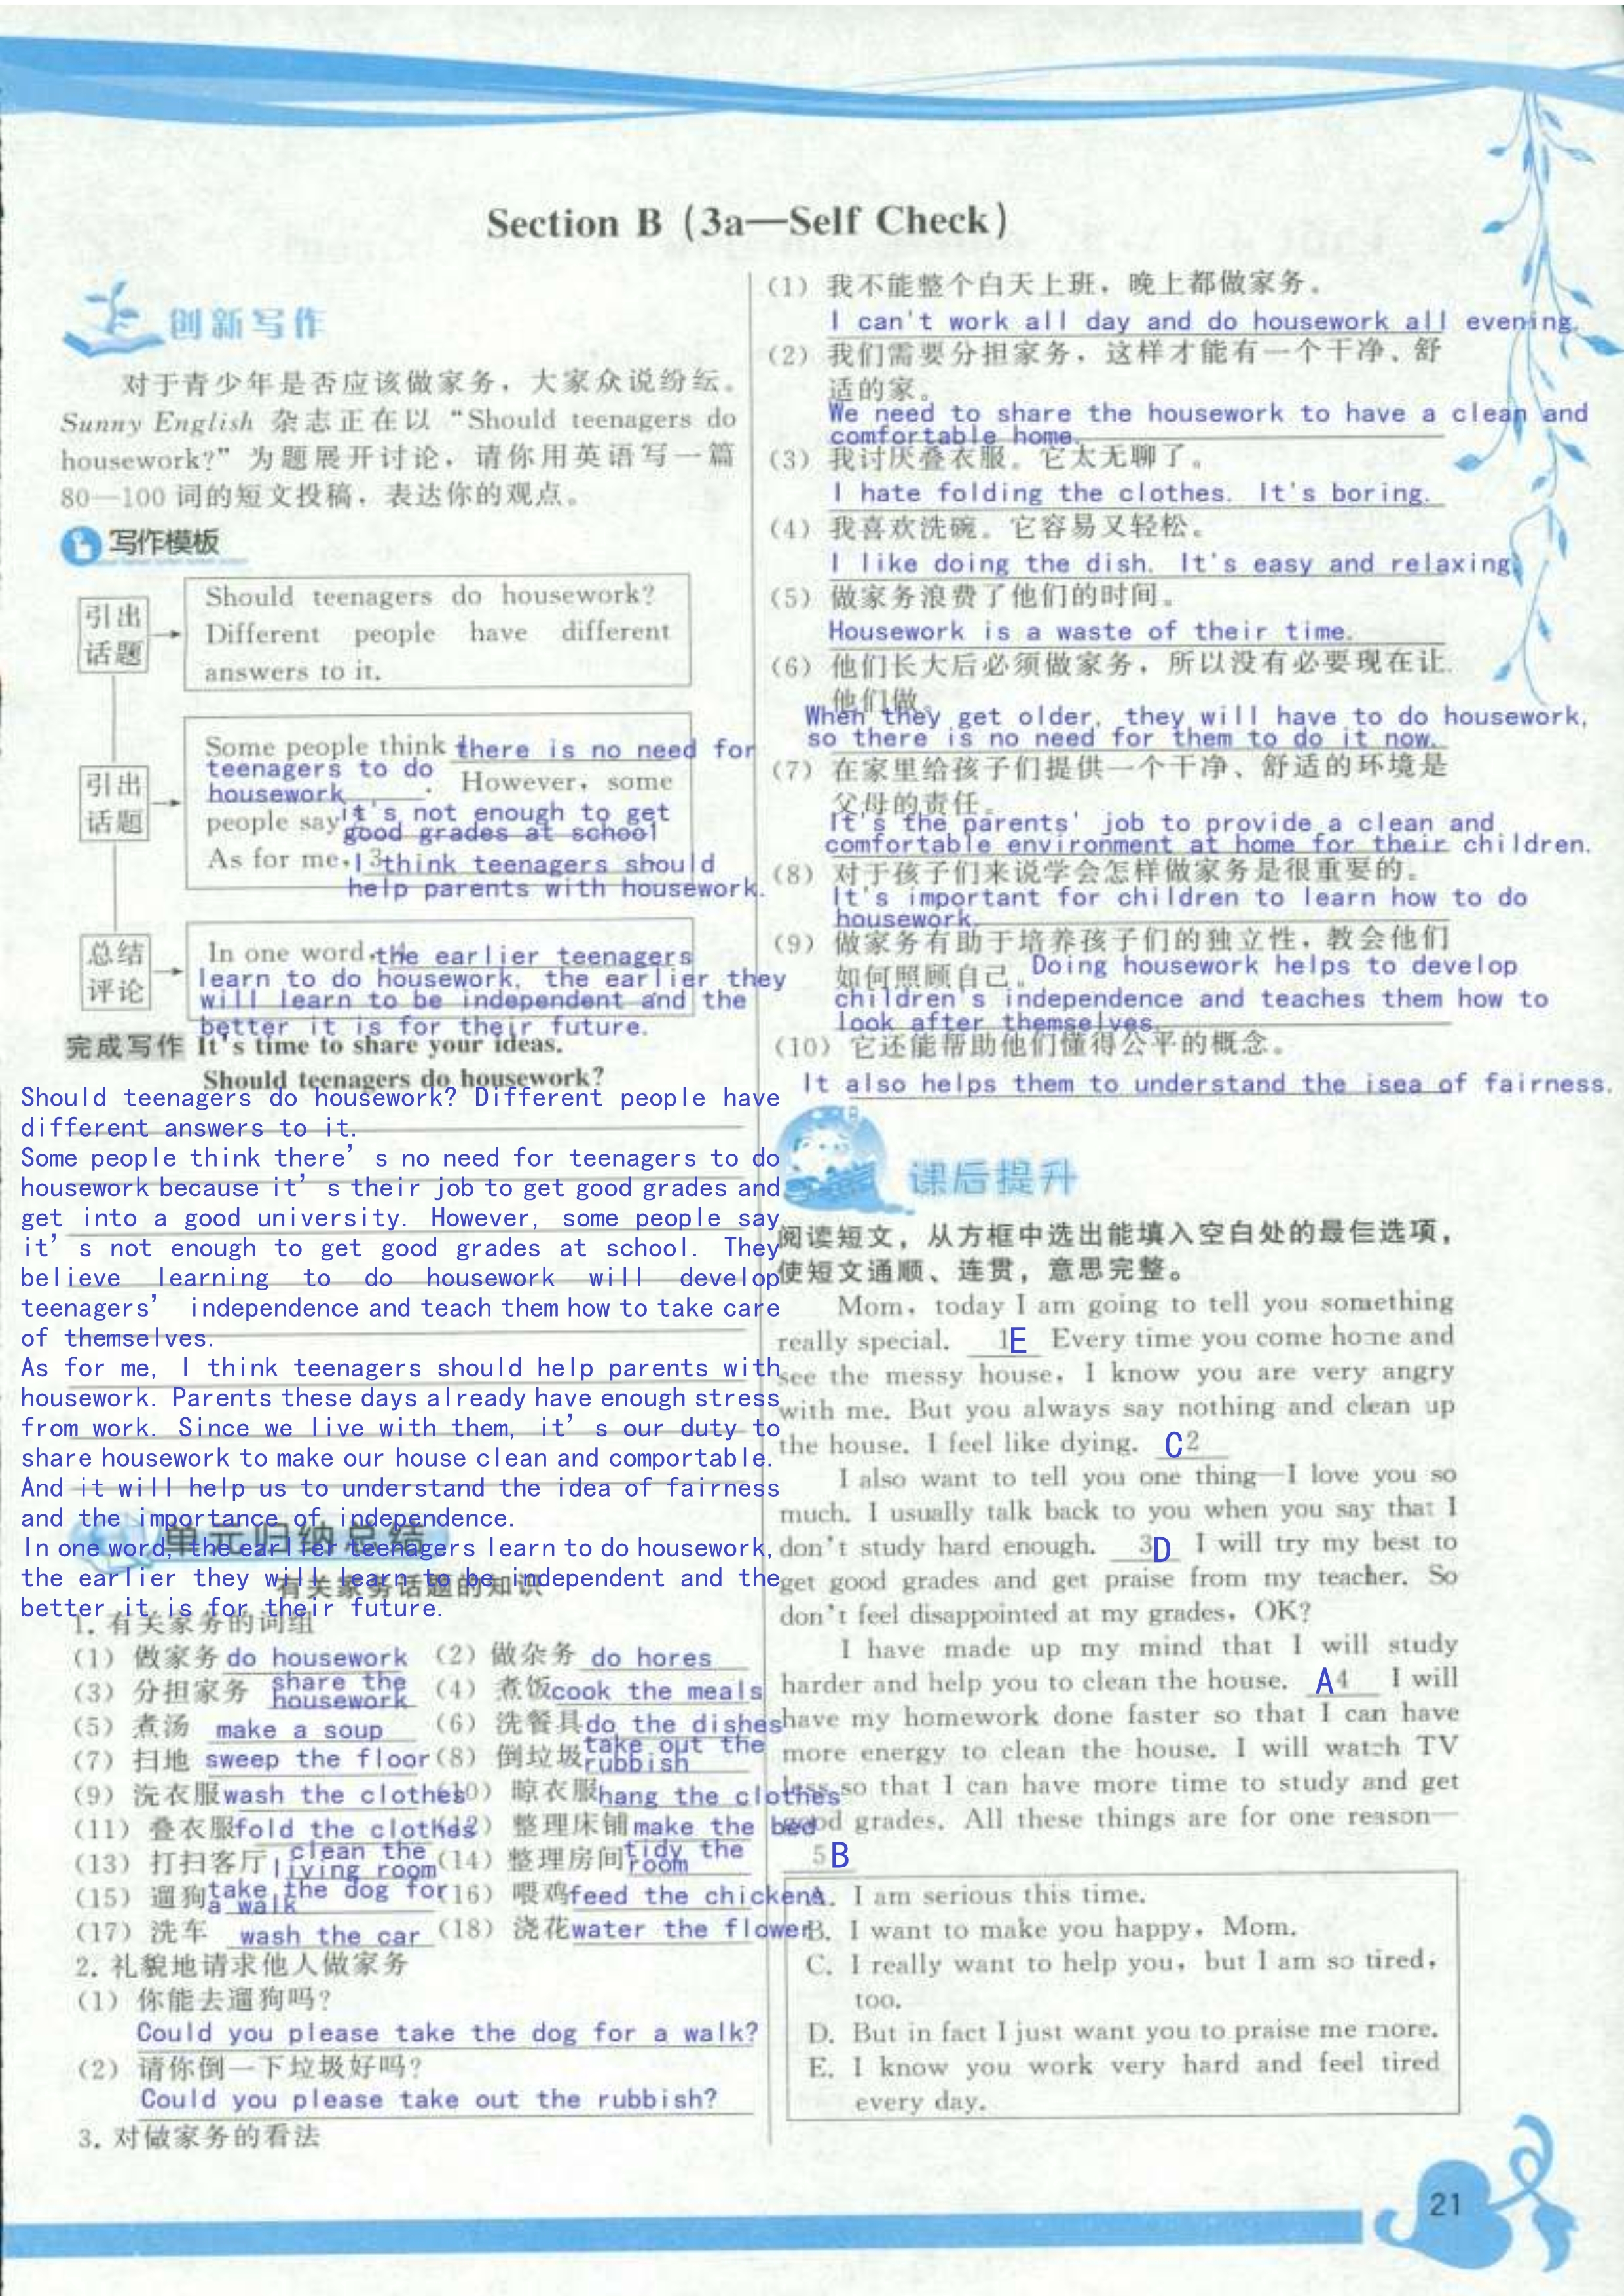 Section B (3a—Self Check)
创新写作
对于青少年是否应该做家务，大家众说纷纭。
Sunny English 杂志正在以 “Should teenagers do
housework?” 为题展开讨论，请你用英语写一篇
80—100 词的短文投稿，表达你的观点。
写作模板
引出
话题
Should teenagers do housework?
Different people have different
answers to it.
引出
话题
Some people think there is no need for
teenagers to do
housework. However, some
people say it's not enough to get
good grades at school
As for me, 3 I think teenagers should
help parents with housework.
总结
评论
In one word, the earlier teenagers
learn to do housework, the earlier they
will learn to be independent and the
better it is for their future.
完成写作 It's time to share your ideas.
Should teenagers do housework?
Should teenagers do housework? Different people have
different answers to it.
Some people think there’s no need for teenagers to do
housework because it’s their job to get good grades and
get into a good university. However, some people say
it’s not enough to get good grades at school. They
believe learning to do housework will develop
teenagers’ independence and teach them how to take care
of themselves.
As for me, I think teenagers should help parents with
housework. Parents these days already have enough stress
from work. Since we live with them, it’s our duty to
share housework to make our house clean and comportable.
And it will help us to understand the idea of fairness
and the importance of independence.
In one word, the earlier teenagers learn to do housework,
the earlier they will learn to be independent and the
better it is for their future.
单元归纳总结
有关家务话题的知识
1. 有关家务的词组
(1) 做家务 do housework (2) 做杂务 do hores
(3) 分担家务 share the housework (4) 煮饭 cook the meals
(5) 煮汤 make a soup (6) 洗餐具 do the dishes
(7) 扫地 sweep the floor (8) 倒垃圾 take out the rubbish
(9) 洗衣服 wash the clothes (10) 晾衣服 hang the clothes
(11) 叠衣服 fold the clothes (12) 整理床铺 make the bed
(13) 打扫客厅 clean the living room (14) 整理房间 tidy the room
(15) 遛狗 take the dog for a walk (16) 喂鸡 feed the chickens
(17) 洗车 wash the car (18) 浇花 water the flower
2. 礼貌地请求他人做家务
(1) 你能去遛狗吗?
Could you please take the dog for a walk?
(2) 请你倒一下垃圾好吗?
Could you please take out the rubbish?
3. 对做家务的看法
(1) 我不能整个白天上班，晚上都做家务。
I can't work all day and do housework all evening.
(2) 我们需要分担家务，这样才能有一个干净、舒
适的家。
We need to share the housework to have a clean and
comfortable home.
(3) 我讨厌叠衣服。它太无聊了。
I hate folding the clothes. It's boring.
(4) 我喜欢洗碗。它容易又轻松。
I like doing the dish. It's easy and relaxing.
(5) 做家务浪费了他们的时间。
Housework is a waste of their time.
(6) 他们长大后必须做家务，所以没有必要现在让
他们做。
When they get older, they will have to do housework,
so there is no need for them to do it now.
(7) 在家里给孩子们提供一个干净、舒适的环境是
父母的责任。
It's the parents' job to provide a clean and
comfortable environment at home for their children.
(8) 对于孩子们来说学会怎样做家务是很重要的。
It's important for children to learn how to do
housework.
(9) 做家务有助于培养孩子们的独立性，教会他们
如何照顾自己。Doing housework helps to develop
children's independence and teaches them how to
look after themselves.
(10) 它还能帮助他们懂得公平的概念。
It also helps them to understand the isea of fairness.
课后提升
阅读短文，从方框中选出能填入空白处的最佳选项，
使短文通顺、连贯，意思完整。
Mom, today I am going to tell you something
really special. 1 E Every time you come home and
see the messy house, I know you are very angry
with me. But you always say nothing and clean up
the house. I feel like dying. C 2
I also want to tell you one thing—I love you so
much. I usually talk back to you when you say that I
don't study hard enough. 3 D I will try my best to
get good grades and get praise from my teacher. So
don't feel disappointed at my grades, OK?
I have made up my mind that I will study
harder and help you to clean the house. A 4 I will
have my homework done faster so that I can have
more energy to clean the house. I will watch TV
less so that I can have more time to study and get
good grades. All these things are for one reason—
5 B
A. I am serious this time.
B. I want to make you happy, Mom.
C. I really want to help you, but I am so tired,
too.
D. But in fact I just want you to praise me more.
E. I know you work very hard and feel tired
every day.
21